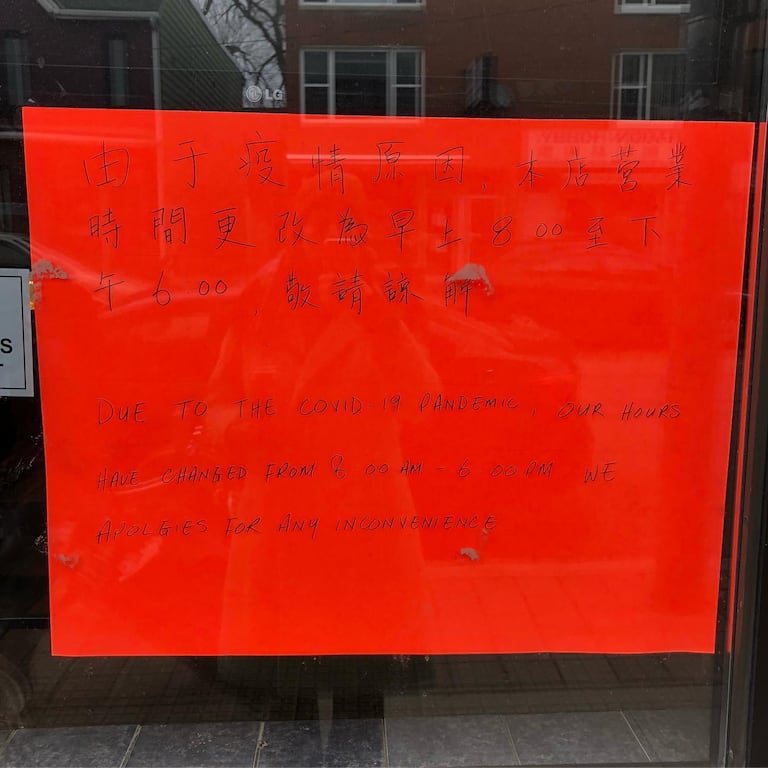 LG
由于疫情原因,本店营業
時間更改為早上 8 00 至下
午 6 00 , 敬請諒解
DUE TO THE COVID-19 PANDEMIC, OUR HOURS
HAVE CHANGED FROM 8 00 AM - 6 00 PM WE
APOLGIES FOR ANY INCONVENIENCE
S